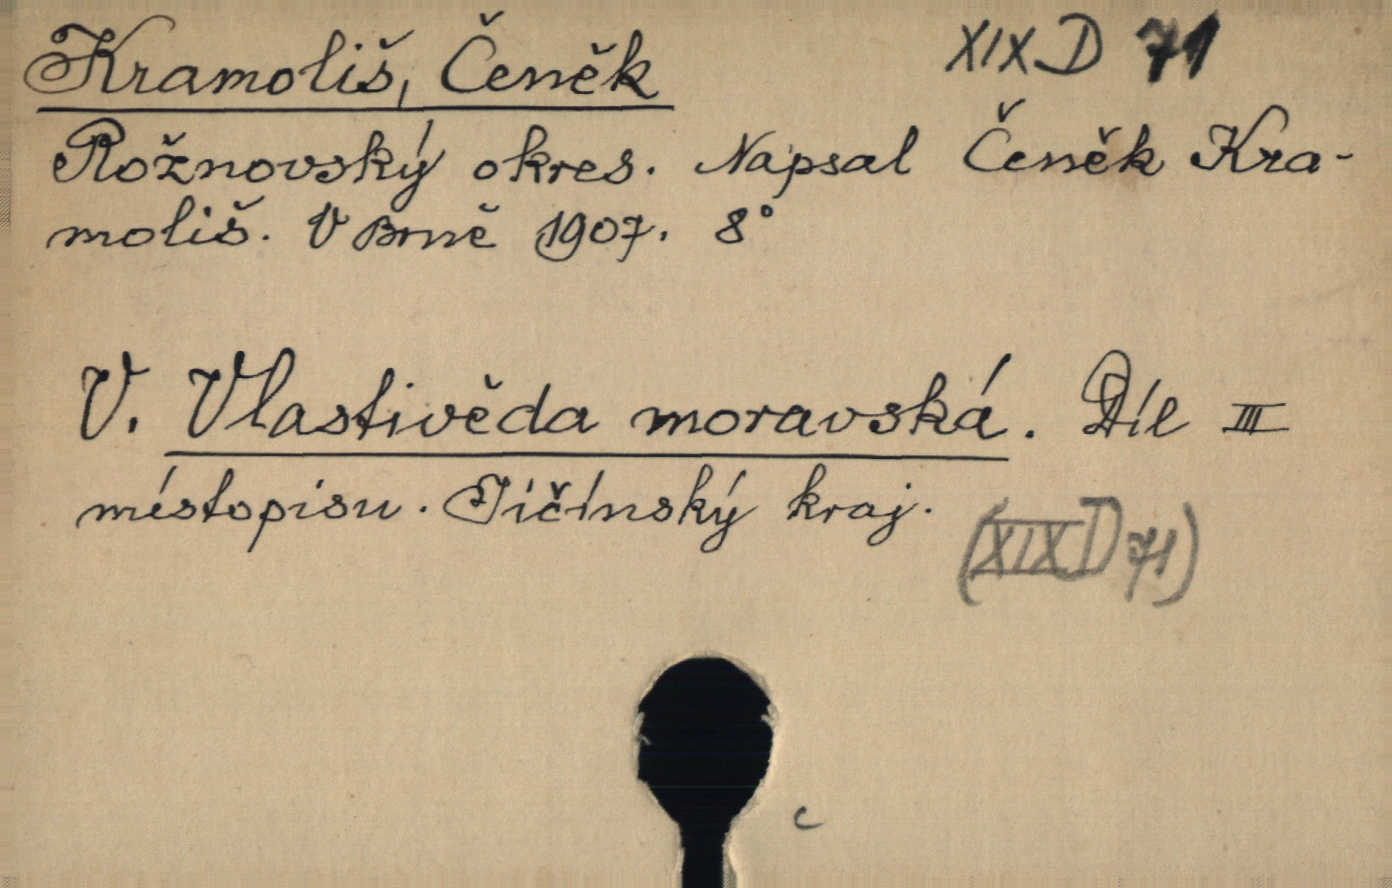 Kramoliš, Čeněk XIX D 71
Rožnovský okres. Napsal Čeněk Kra-
moliš. V Brně 1907. 8°
V. Vlastivěda moravská. Díl III
místopisu. Jičínský kraj.
(XIX D 71)
c